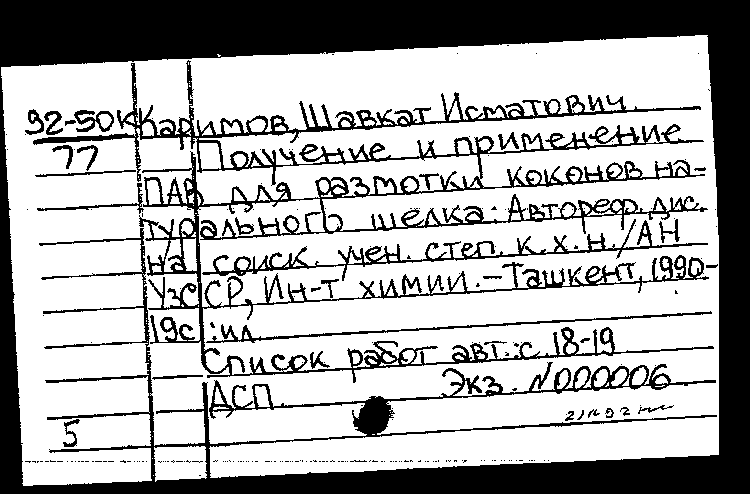 92-50К Каримов, Шавкат Исматович.
77 Получение и применение
ПАВ для размотки коконов на-
турального шелка: Автореф. дис.
на соиск. учен. степ. к.х.н. / АН
УзССР, Ин-т химии. – Ташкент, 1990-
19с.: ил.
Список работ авт.: с. 18-19
ДСП. Экз. №000006
5